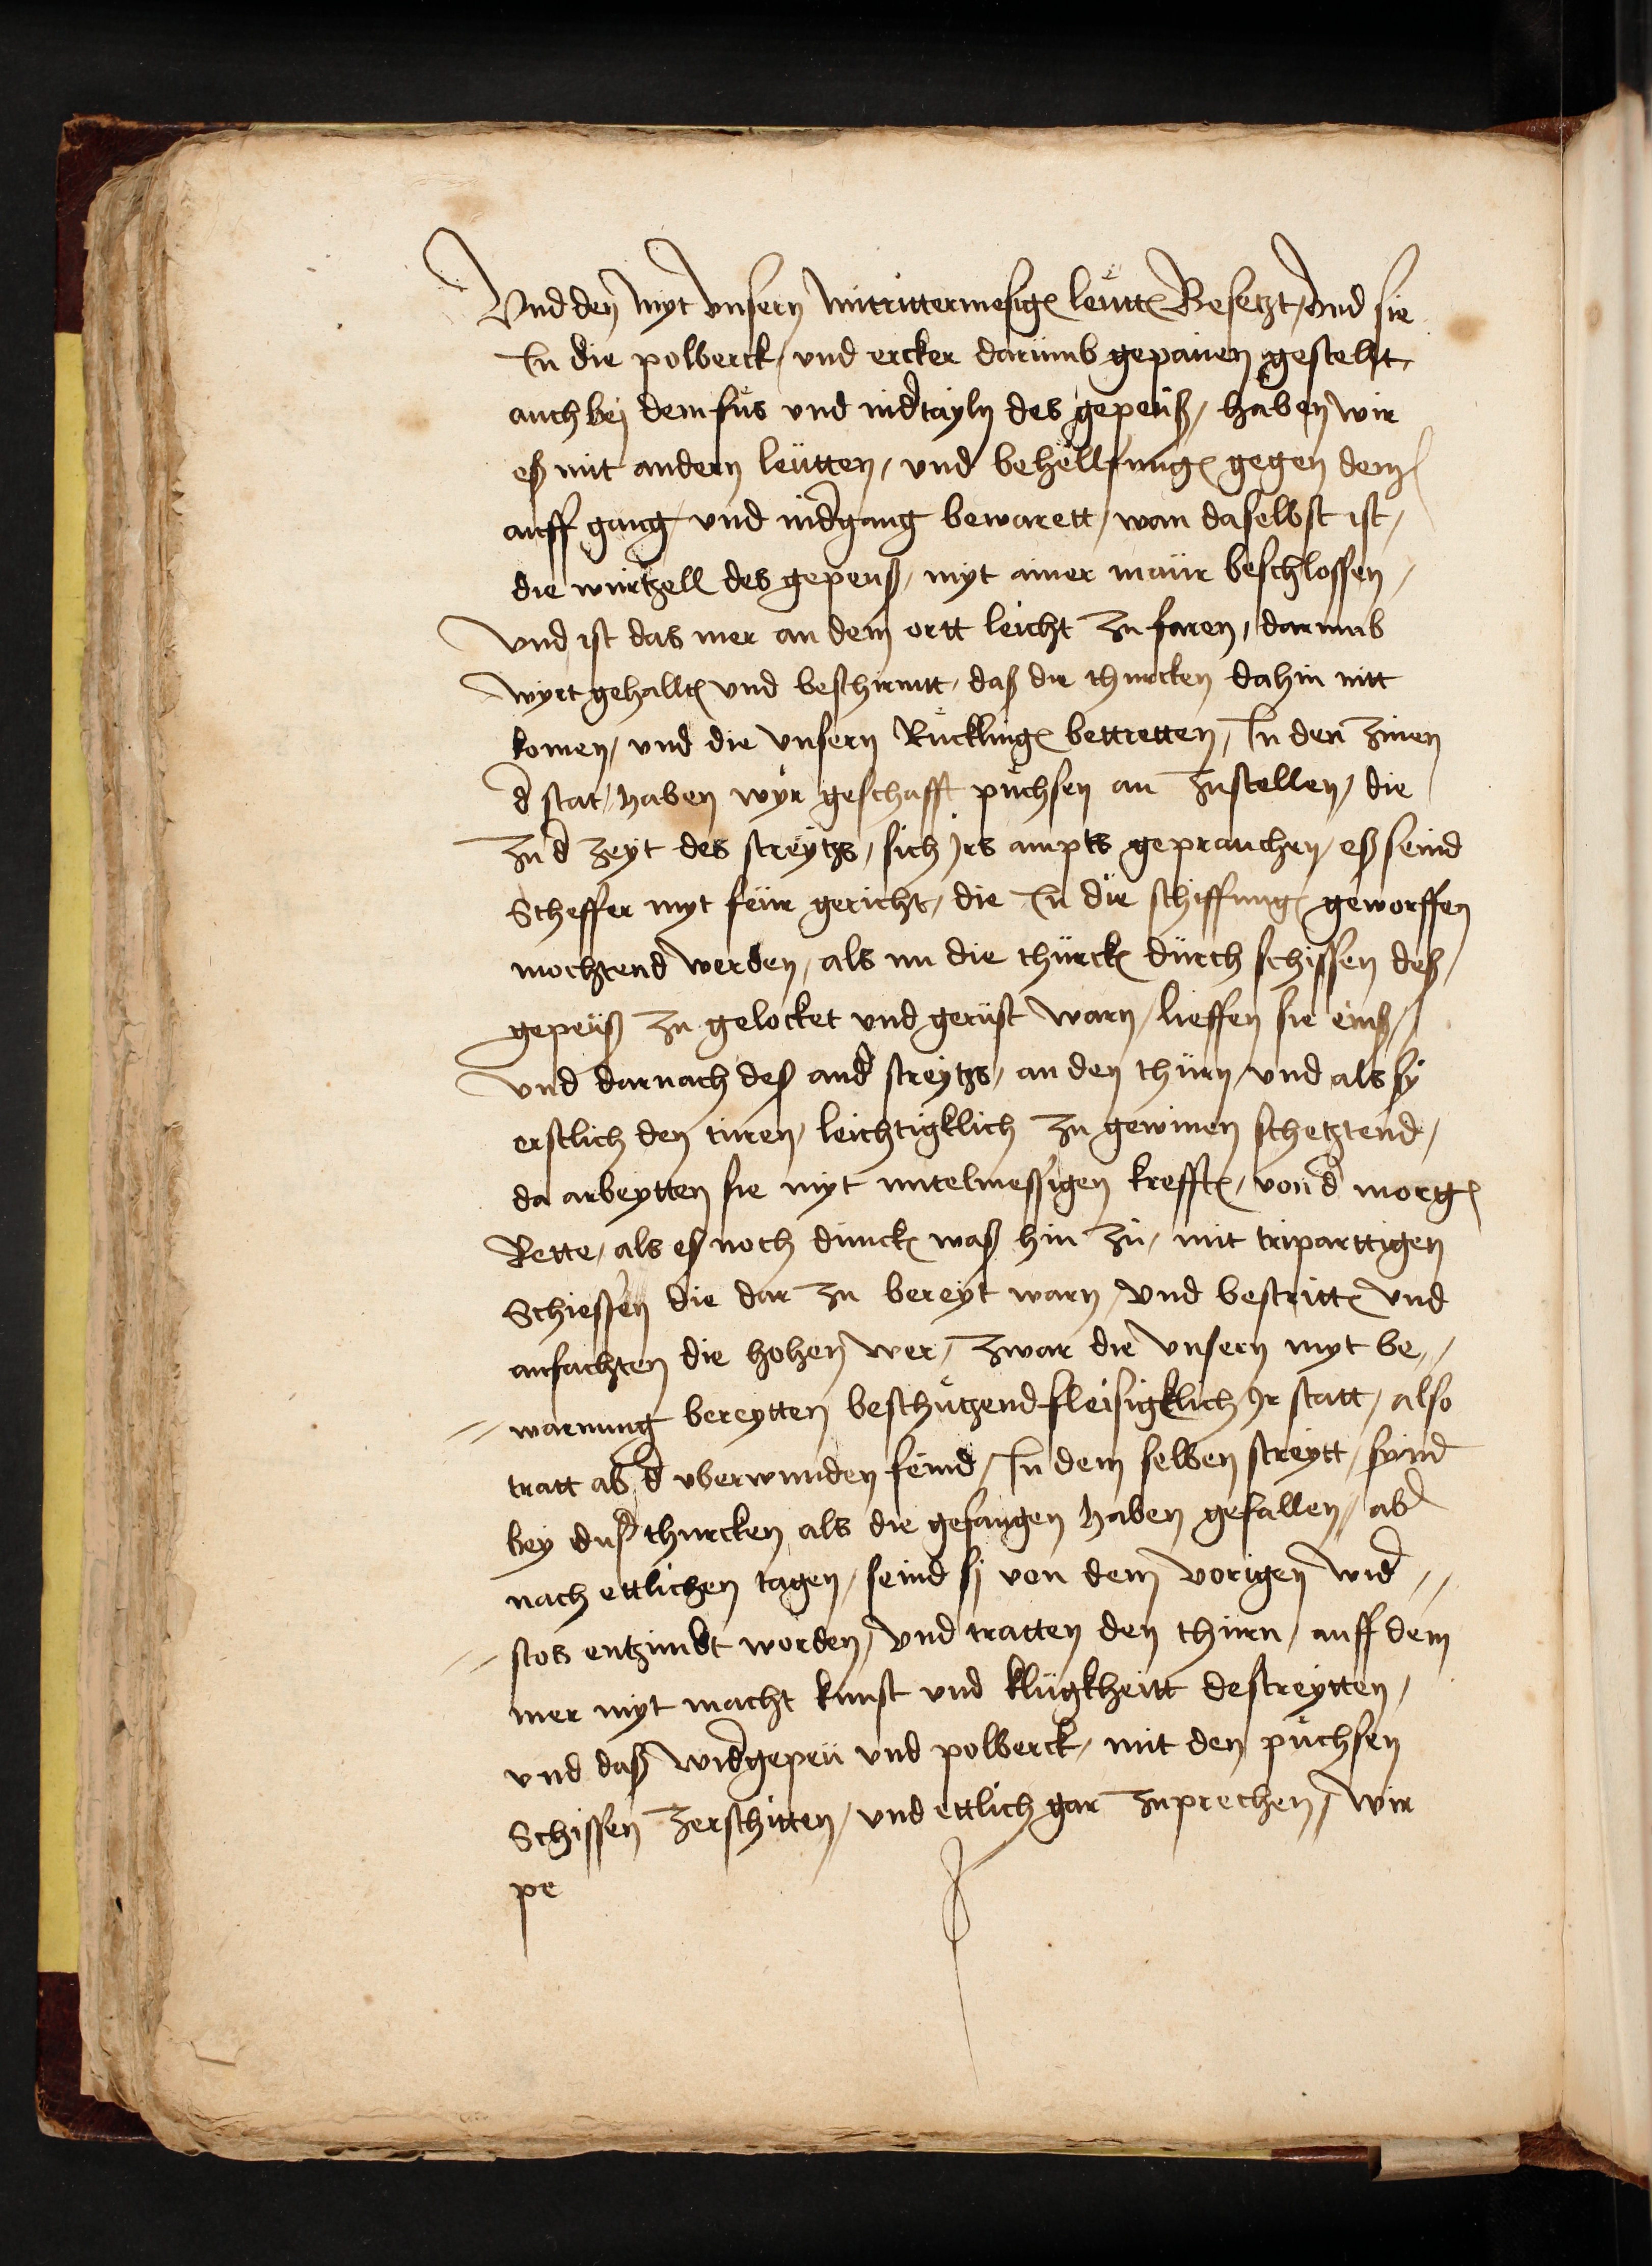 Vnd den myt vnsern mitrittermesigen leütten Besetzt, vnd sie
In die polberck, vnd ercker darumb gepauen gestelt,
auch bej dem fus vnd nidtayln des gepeüß, haben wir
eß mit andern leütten, vnd behellfnung gegen dem
auff gang, vnd nidgang bewarett, wan daselbst ist,
die wurtzell des gepeuß, myt ainer maur beschlossen,
vnd ist das mer an dem ortt leicht zu faren, darumb
wyrt gehallten vnd beschirmtt, daß die thurcken dahin nitt
komen, vnd die vnsern Rücklingen bettretten, In den zinen
d stat, haben wyr geschafft puchsen an zustellen, die
zu d zeyt des streytzs, sich jrs ampts geprauchen, eß seind
Scheffer myt feür gericht, die In die schiffung geworffen
mochtend werden, als nu die thürcken dürch schissen deß,
gepeuß zu gelocket vnd gerüst warn, lieffen sie einß,
vnd darnach deß and streytzs, an den thürn, vnd als sy
erstlich den turen, leichtigklich zu gewinen schetztend,
da arbeytten sie myt mitelmessigen krefften, von d morgen
Rette, als eß noch dunckel waß hin zu, mit triparttigen
Schiessen die dar zu bereyt warn, vnd bestritten vnd
anfachten die hohen wer, zwar die vnsern myt be„
„warnung bereytten beschützend fleisigklich jr statt, also
tratt ab d vberwunden feind, In dem selben streytt, syind
bey thurcken als die gefangen haben gefallen, abd
nach ettlichen tagen, seind sj von dem vorigen wid„
„stos entzindt worden, vnd tratten den thurn, auff dem
mer myt macht kunst vnd klugkheitt bestreytten,
vnd daß widgepeu vnd polberck, mit den puchsen
Schissen zerschitten, vnd ettlich gar zuprechen, wir
pe